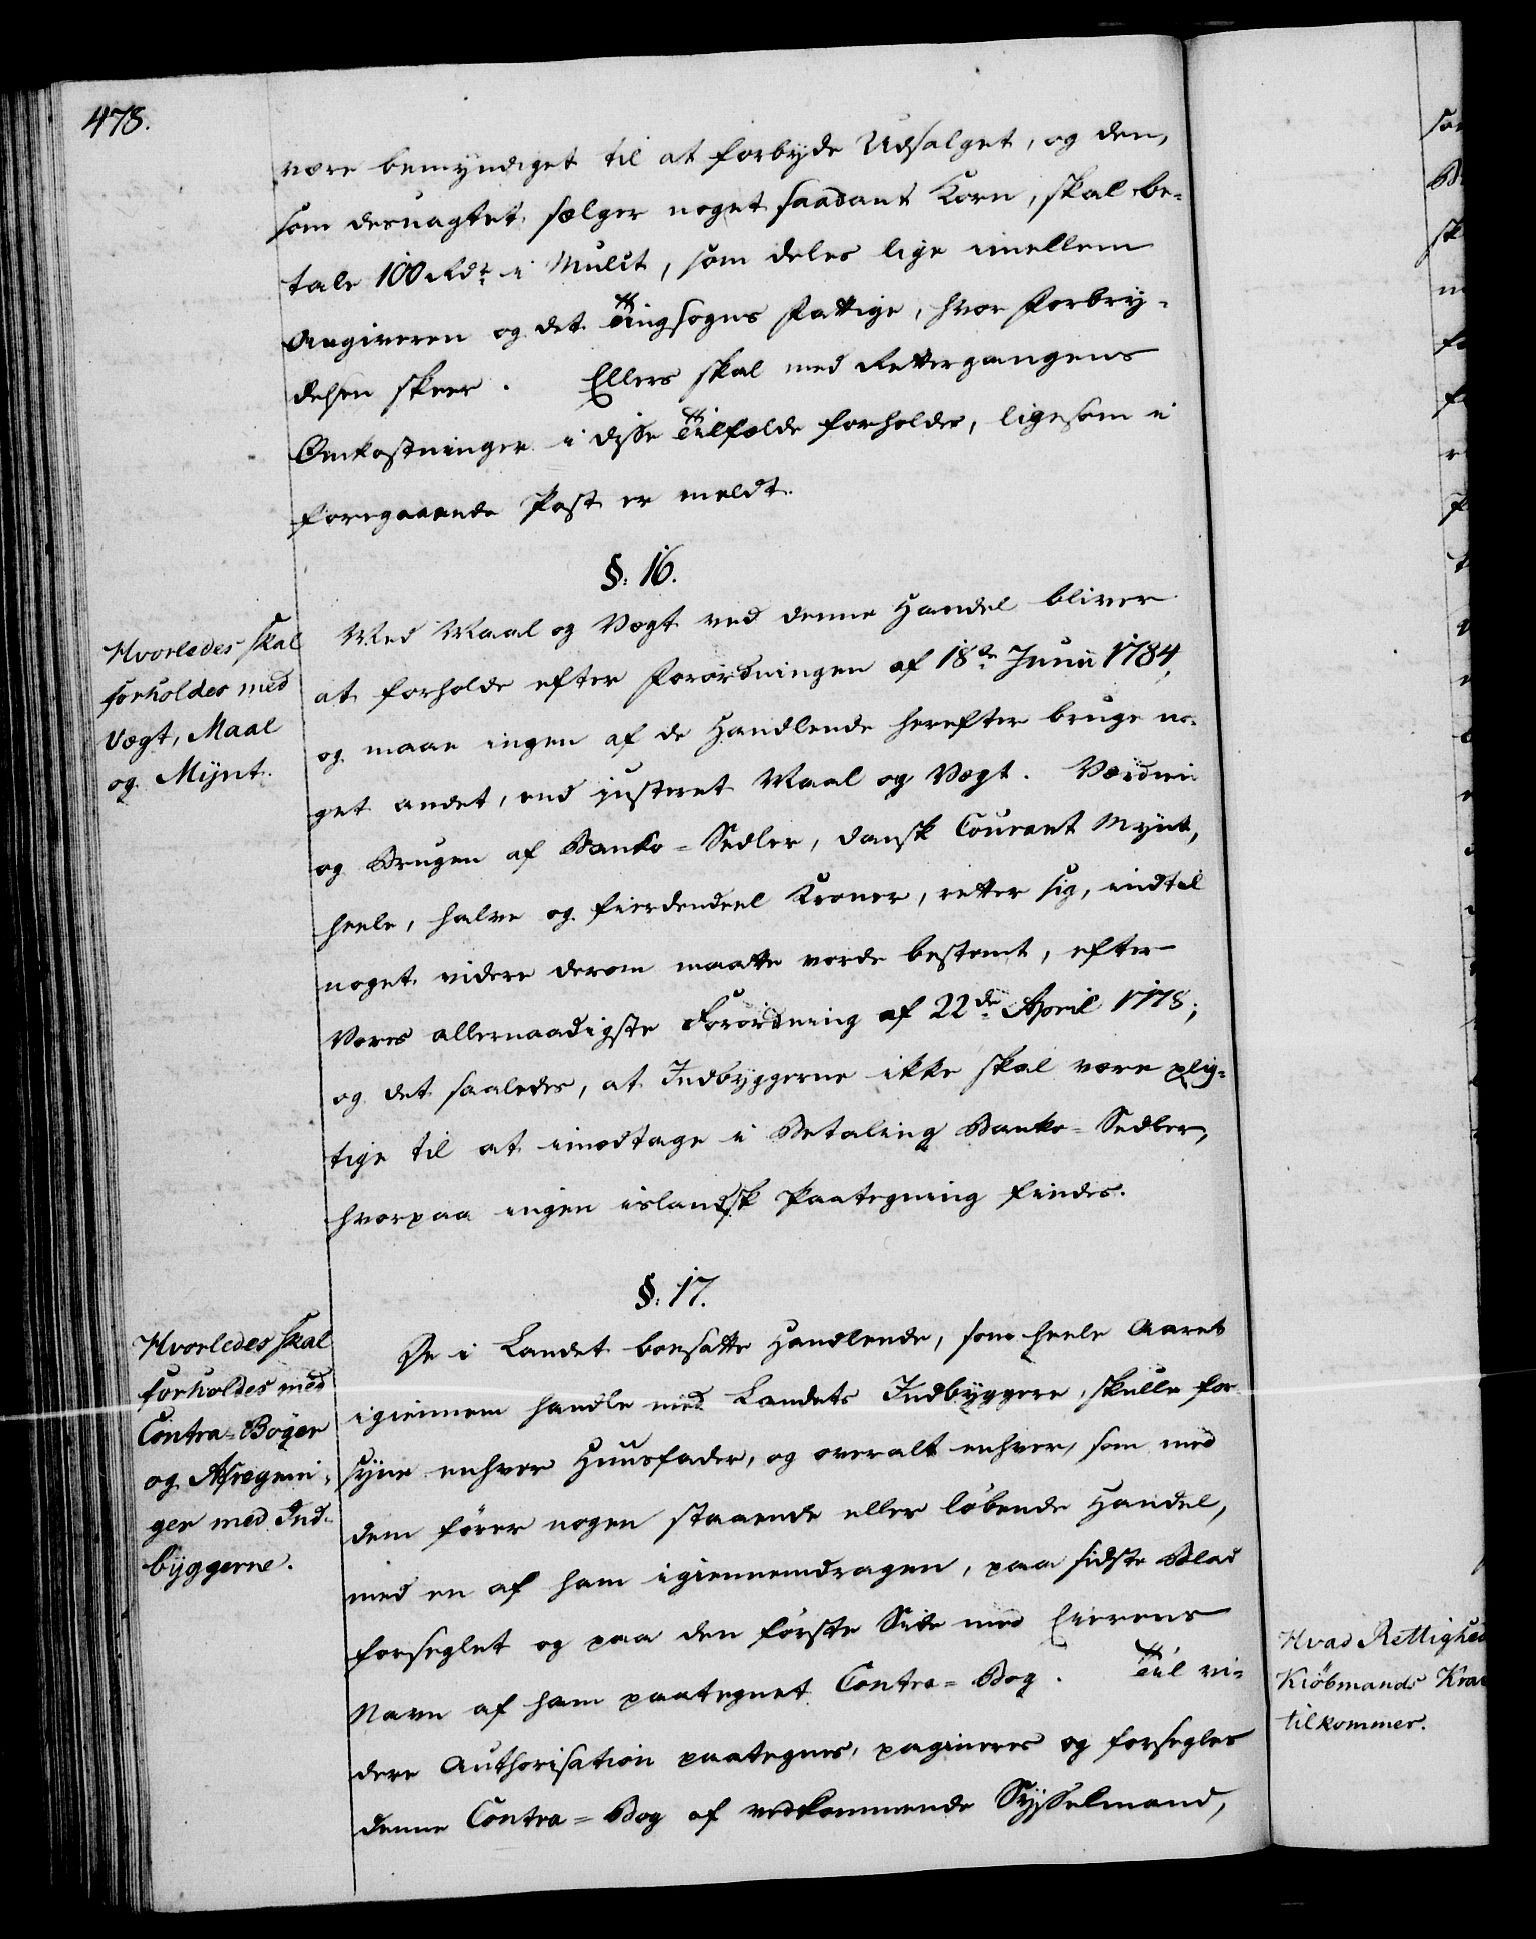 478.
være bemyndiget til at forbyde Udsalget, og den,
som desuagtet sælger noget saadant Korn, skal be-
tale 100 Rdr i Mulct, som deles lige imellem
Angiveren og det Tingsogns Fattige, hvor Forbry-
delsen skeer. Ellers skal med Rettergangens
Omkostninger i disse Tilfælde forholdes, ligesom i
foregaaende Post er meldt.
§. 16.
Hvorledes skal
forholdes med
Vægt, Maal
og Mynt.
Med Maal og Vægt ved denne Handel bliver
at forholde efter Forordningen af 18de Junii 1784,
og maae ingen af de Handlende herefter bruge no-
get andet, end justeret Maal og Vægt. Værdien
og Brugen af Banko-Sedler, dansk Courant Mynt,
heele, halve og fierdendeel Kroner, retter sig, indtil
noget videre derom maatte vorde bestemt, efter
Vores allernaadigste Forordning af 22de April 1778;
og det saaledes, at Indbyggerne ikke skal være plig-
tige til at imodtage i Betaling Banko-Sedler,
hvorpaa ingen islandsk Paategning findes.
§. 17.
Hvorledes skal
forholdes med
Contra-Bøger
og Afregnin-
ger med Ind-
byggerne.
De i Landet boesatte Handlende, som heele Aaret
igiennem handle med Landets Indbyggere, skulle for-
syne enhver Huusfader, og overalt enhver, som med
dem fører nogen staaende eller løbende Handel,
med en af ham igiennemdragen, paa sidste Blad
forseglet og paa den første Side med Eierens
Navn af ham paategnet Contra-Bog. Til vi-
dere Authorisation paategnes, pagineres og forsegles
denne Contra-Bog af vedkommende Sysselmand,
Hvad Rettighed
Kiöbmands Kra
tilkommer.